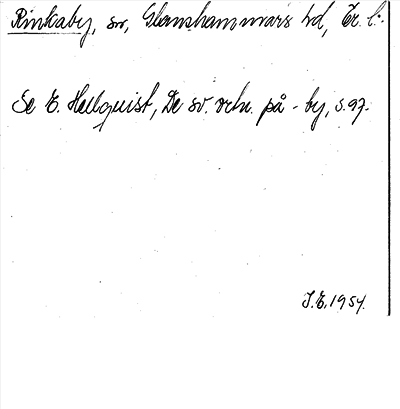 Rinkaby, sn, Glanshammars hd, Ör. l.
Se E. Hellquist, De sv. ortn. på -by, s. 97.
J.E. 1954.